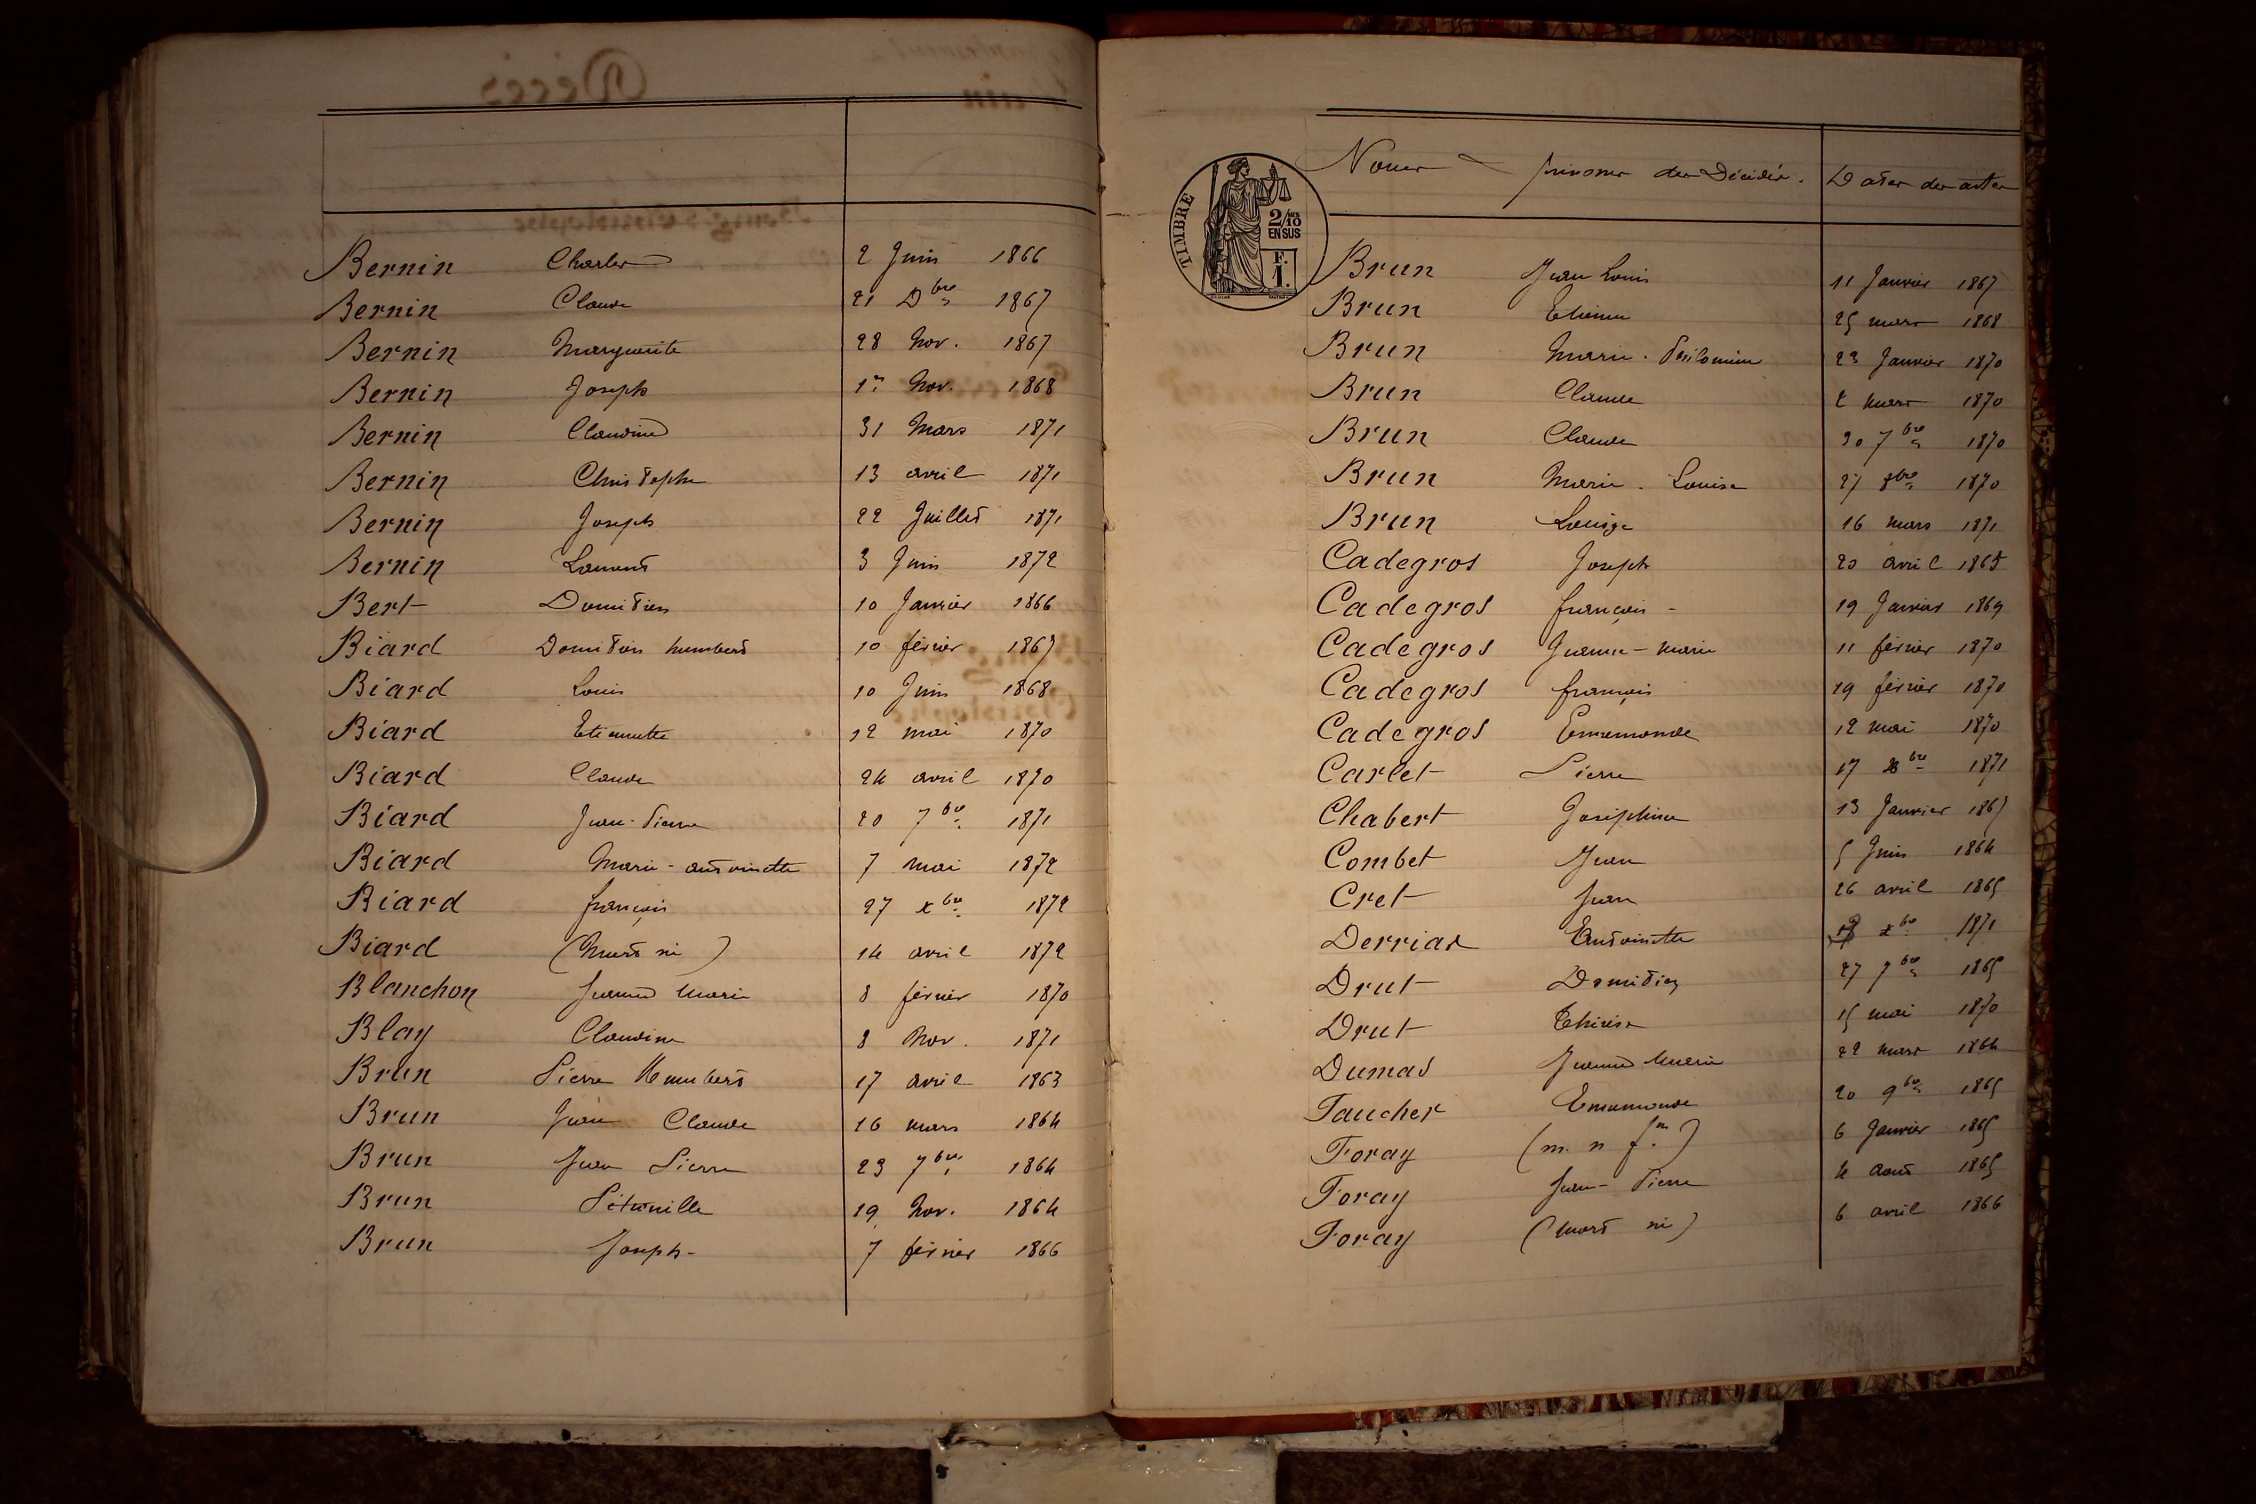 Bernin Charles 2 Juin 1866
Bernin Claude 21 Dbre 1867
Bernin Marguerite 28 Nov. 1867
Bernin Joseph 1er Nov. 1868
Bernin Claudine 31 Mars 1871
Bernin Christophe 13 avril 1871
Bernin Joseph 22 Juillet 1871
Bernin Laurent 3 Juin 1872
Bert Domitien 10 Janvier 1866
Biard Domitien humbert 10 février 1867
Biard Louis 10 Juin 1868
Biard Etiennette 12 mai 1870
Biard Claude 24 avril 1870
Biard Jean-Pierre 20 7bre 1871
Biard Marie-antoinette 7 mai 1872
Biard françois 27 xbre 1872
Biard (Mort né) 14 avril 1872
Blanchon Jeanne Marie 8 février 1870
Blay Claudine 8 Nov. 1871
Brun Pierre Humbert 17 avril 1863
Brun Jean Claude 16 mars 1864
Brun Jean Pierre 23 7bre 1864
Brun Pétronille 19 Nov. 1864
Brun Joseph- 7 février 1866
TIMBRE
2/10 EN SUS
F. 1.
Noms & prénoms des Décédés. Dates des actes
Brun Jean Louis 11 Janvier 1867
Brun Etienne 25 mars 1868
Brun Marie-Philomène 23 Janvier 1870
Brun Claude 2 mars 1870
Brun Claude 30 7bre 1870
Brun Marie-Louise 27 8bre 1870
Brun Louise 16 mars 1871
Cadegros Joseph 20 avril 1865
Cadegros françois- 19 Janvier 1869
Cadegros Jeanne-marie 11 février 1870
Cadegros françois 19 février 1870
Cadegros Ennemonde 12 mai 1870
Carlet Pierre 17 bre 1871
Chabert Joséphine 13 Janvier 1867
Combet Jean 5 Juin 1864
Cret Jean 26 avril 1865
Derriax Antoinette xbre 1871
Drut Domitien 27 7bre 1865
Drut Thérèse 15 mai 1870
Dumas Jeanne Marie 22 mars 1864
Faucher Ennemonde 20 9bre 1865
Foray (m. n f.) 6 Janvier 1865
Foray Jean-Pierre 4 août 1865
Foray (Mort né) 6 avril 1866